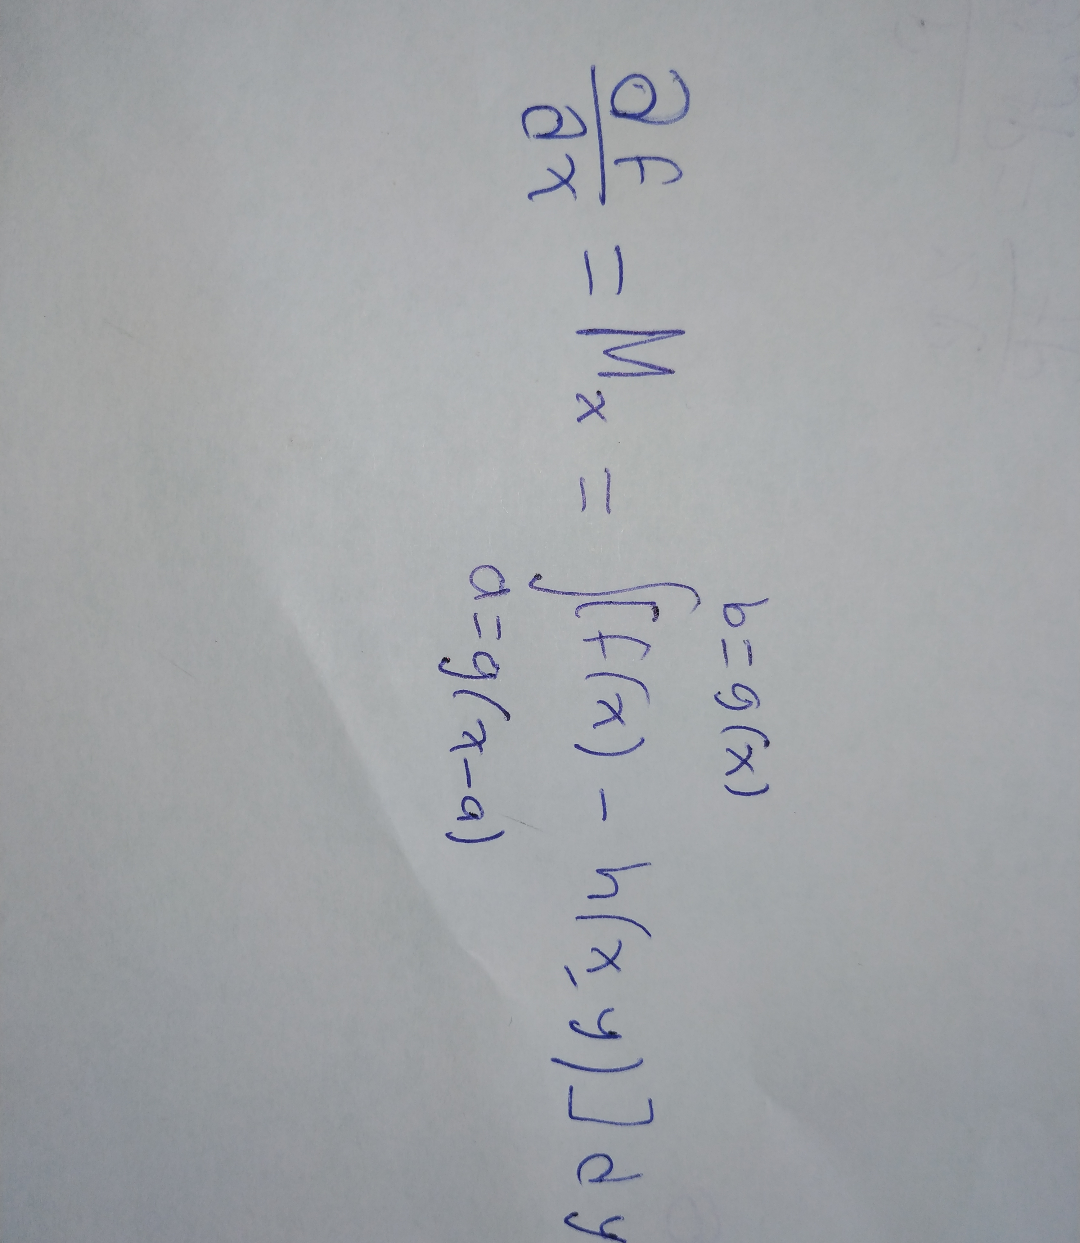 ∂f/∂x = Mₓ = ∫_{a=g(x-a)}^{b=g(x)} [f(x) - h(x,y)] dy